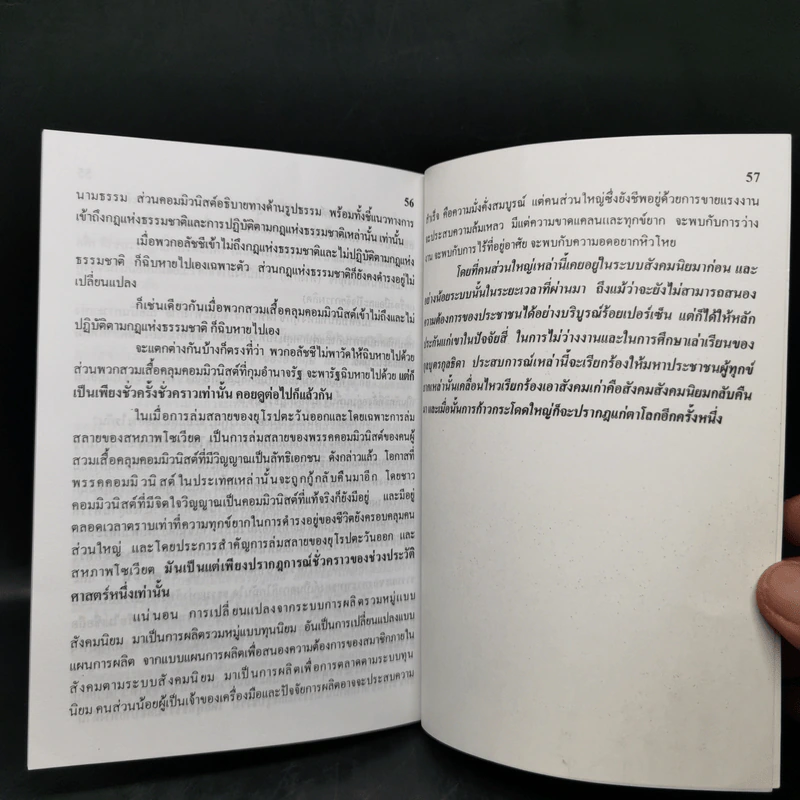 56
นามธรรม ส่วนคอมมิวนิสต์อธิบายทางด้านรูปธรรม พร้อมทั้งชี้แนวทางการ
เข้าถึงกฎแห่งธรรมชาติและการปฏิบัติตามกฎแห่งธรรมชาติเหล่านั้น เท่านั้น
เมื่อพวกอลัชชีเข้าไม่ถึงกฎแห่งธรรมชาติและไม่ปฏิบัติตามกฎแห่ง
ธรรมชาติ ก็ฉิบหายไปเองเฉพาะตัว ส่วนกฎแห่งธรรมชาติก็ยังคงดำรงอยู่ไม่
เปลี่ยนแปลง
ก็เช่นเดียวกันเมื่อพวกสวมเสื้อคลุมคอมมิวนิสต์เข้าไม่ถึงและไม่
ปฏิบัติตามกฎแห่งธรรมชาติ ก็ฉิบหายไปเอง
จะแตกต่างกันบ้างก็ตรงที่ว่า พวกอลัชชีไม่พาวัดให้ฉิบหายไปด้วย
ส่วนพวกสวมเสื้อคลุมคอมมิวนิสต์ที่กุมอำนาจรัฐ จะพารัฐฉิบหายไปด้วย แต่ก็
เป็นเพียงชั่วครั้งชั่วคราวเท่านั้น คอยดูต่อไปก็แล้วกัน
ในเมื่อการล่มสลายของยุโรปตะวันออกและโดยเฉพาะการล่ม
สลายของสหภาพโซเวียต เป็นการล่มสลายของพรรคคอมมิวนิสต์ของคนผู้
สวมเสื้อคลุมคอมมิวนิสต์ที่มีวิญญาณเป็นลัทธิเอกชน ดังกล่าวแล้ว โอกาสที่
พรรคคอมมิวนิสต์ในประเทศเหล่านั้นจะถูกกู้กลับคืนมาอีก โดยชาว
คอมมิวนิสต์ที่มีจิตใจวิญญาณเป็นคอมมิวนิสต์ที่แท้จริงก็ยังมีอยู่ และมีอยู่
ตลอดเวลาตราบเท่าที่ความทุกข์ยากในการดำรงอยู่ของชีวิตยังครอบคลุมคน
ส่วนใหญ่ และโดยประการสำคัญการล่มสลายของยุโรปตะวันออก และ
สหภาพโซเวียต มันเป็นแต่เพียงปรากฏการณ์ชั่วคราวของช่วงประวัติ
ศาสตร์หนึ่งเท่านั้น
แน่นอน การเปลี่ยนแปลงจากระบบการผลิตรวมหมู่แบบ
สังคมนิยม มาเป็นการผลิตรวมหมู่แบบทุนนิยม อันเป็นการเปลี่ยนแปลงแบบ
แผนการผลิต จากแบบแผนการผลิตเพื่อสนองความต้องการของสมาชิกภายใน
สังคมตามระบบสังคมนิยม มาเป็นการผลิตเพื่อการตลาดตามระบบทุน
นิยม คนส่วนน้อยผู้เป็นเจ้าของเครื่องมือและปัจจัยการผลิตอาจจะประสบความ
57
สำเร็จ คือความมั่งคั่งสมบูรณ์ แต่คนส่วนใหญ่ซึ่งยังชีพอยู่ด้วยการขายแรงงาน
จะประสบความล้มเหลว มีแต่ความขาดแคลนและทุกข์ยาก จะพบกับการว่าง
งาน จะพบกับการไร้ที่อยู่อาศัย จะพบกับความอดอยากหิวโหย
โดยที่คนส่วนใหญ่เหล่านี้เคยอยู่ในระบบสังคมนิยมมาก่อน และ
อย่างน้อยระบบนั้นในระยะเวลาที่ผ่านมา ถึงแม้ว่าจะยังไม่สามารถสนอง
ความต้องการของประชาชนได้อย่างบริบูรณ์ร้อยเปอร์เซ็น แต่ก็ได้ให้หลัก
ประกันแก่เขาในปัจจัยสี่ ในการไม่ว่างงานและในการศึกษาเล่าเรียนของ
บุตรกุลธิดา ประสบการณ์เหล่านี้จะเรียกร้องให้มหาประชาชนผู้ทุกข์
ยากเหล่านั้นเคลื่อนไหวเรียกร้องเอาสังคมเก่าคือสังคมสังคมนิยมกลับคืน
มา และเมื่อนั้นการก้าวกระโดดใหญ่ก็จะปรากฏแก่ตาโลกอีกครั้งหนึ่ง